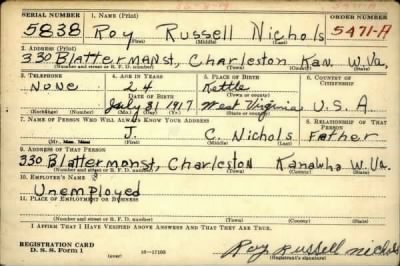 SERIAL NUMBER 1. NAME (Print) ORDER NUMBER
5838 Roy Russell Nichols 5471-A
(First) (Middle) (Last)
2. ADDRESS (Print)
330 Blatterman st, Charleston Kan. W. Va,
(Number and street or R. F. D. number) (Town) (County) (State)
3. TELEPHONE 4. AGE IN YEARS 5. PLACE OF BIRTH 6. COUNTRY OF CITIZENSHIP
None 24 Kettle
DATE OF BIRTH (Town or county)
July 31 1917 West Virginia U. S. A
(Exchange) (Number) (Mo.) (Day) (Yr.) (State or country)
7. NAME OF PERSON WHO WILL ALWAYS KNOW YOUR ADDRESS 8. RELATIONSHIP OF THAT PERSON
J. C. Nichols Father
(Mr., Mrs., Miss) (First) (Middle) (Last)
9. ADDRESS OF THAT PERSON
330 Blatterman st, Charleston Kanawha W. Va.
(Number and street or R. F. D. number) (Town) (County) (State)
10. EMPLOYER'S NAME
Unemployed
11. PLACE OF EMPLOYMENT OR BUSINESS
(Number and street or R. F. D. number) (Town) (County) (State)
I AFFIRM THAT I HAVE VERIFIED ABOVE ANSWERS AND THAT THEY ARE TRUE.
REGISTRATION CARD
D. S. S. Form 1 (over) 16-17105 Roy Russell Nichols
(Registrant's signature)